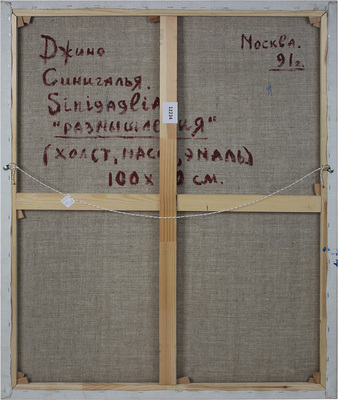 Джино
Синигалья.
Sinigaglia
"РАЗМЫШЛЕНИЯ"
(ХОЛСТ, МАСЛО, ЭМАЛЬ)
100х 0 см.
Москва.
91г.